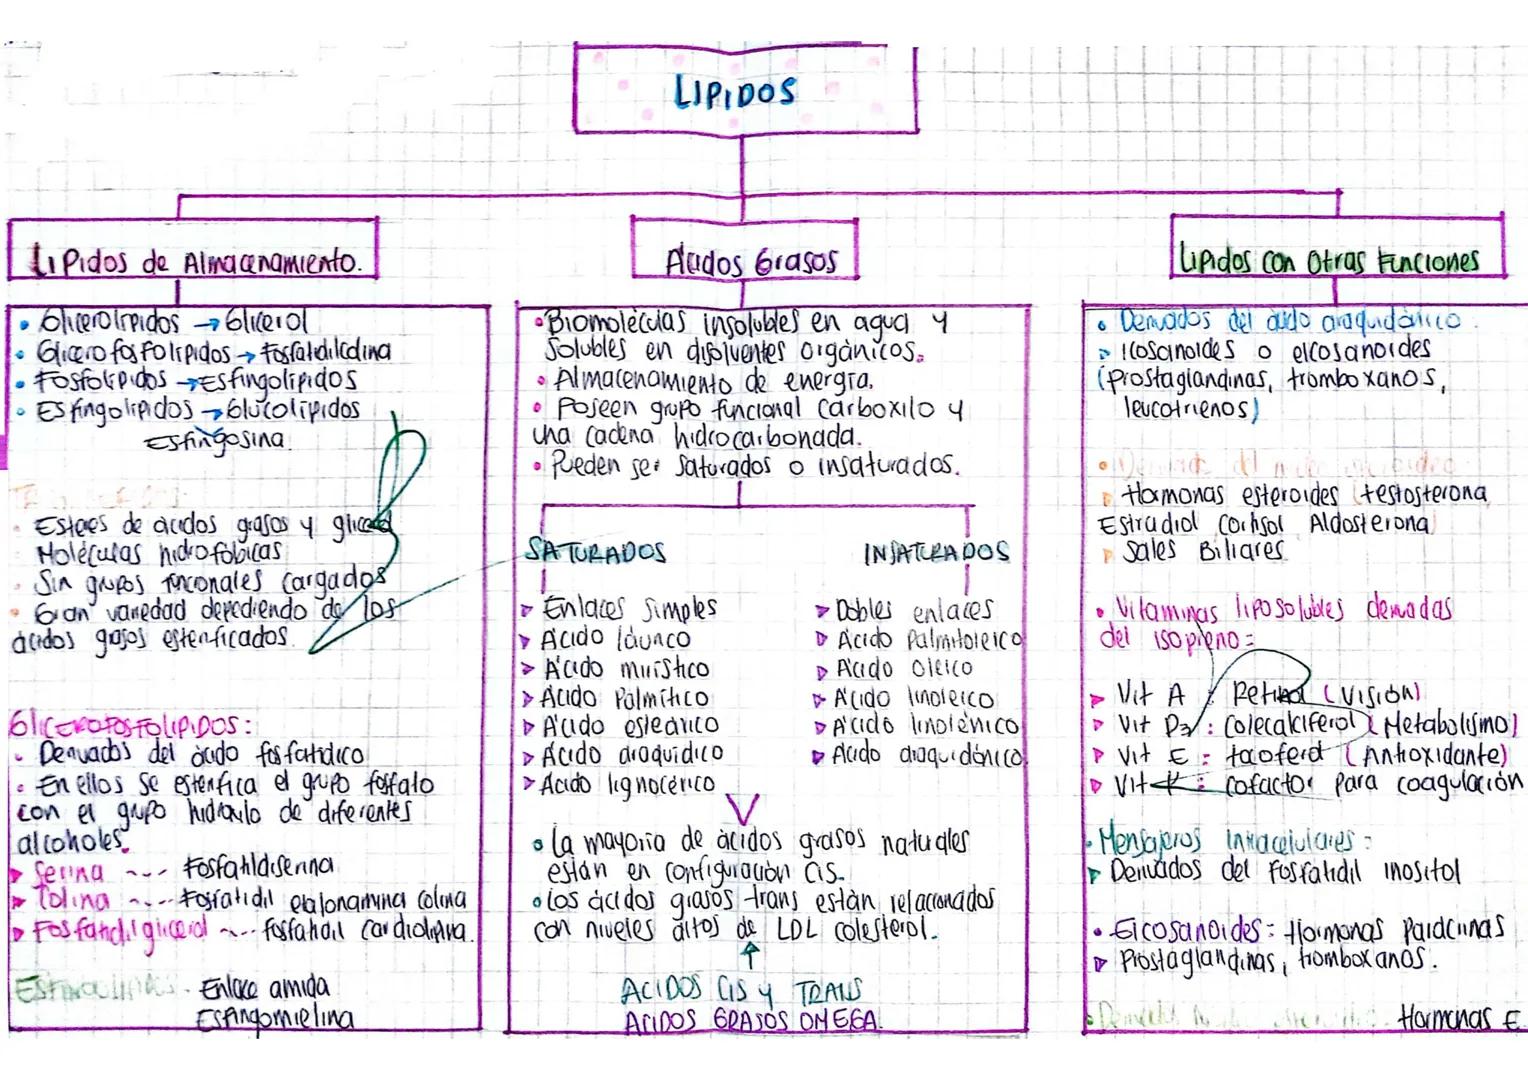 LIPIDOS
Lipidos de Almacenamiento.
• Glicerolípidos → Glicerol
• Glicerofosfolipidos → Fosfatidilcolina
• Fosfolipidos → Esfingolípidos
• Esfingolipidos → Glucolípidos
Esfingosina.
• Esteres de ácidos grasos y
Moléculas hidrofóbicas
• Sin grupos funcionales cargados
• Gran variedad depediendo de los
ácidos grasos esterificados.
GlICEROFOSFOLIPIDOS:
• Derivados del ácido fosfatídico
• En ellos se esterifica el grupo fosfato
con el grupo hidroxilo de diferentes
alcoholes.
Serina --- Fosfatildiserina
Colina --- Fosfatidil colina
Fosfatidil glicerol --- fosfatidil
ESFINGOLIPIDOS - Enlace amida
Esfingomielina
Ácidos Grasos
• Biomoléculas insolubles en agua y
solubles en disolventes orgánicos.
• Almacenamiento de energía.
• Poseen grupo funcional carboxilo y
una cadena hidrocarbonada.
• Pueden ser saturados o insaturados.
SATURADOS
Enlaces simples
Ácido láurico
Ácido mirístico
Ácido Palmítico
Ácido esteárico
Ácido araquídico
Ácido lignocérico
INSATURADOS
Dobles enlaces
Ácido Palmitoleico
Ácido Oleico
Ácido linoleico
Ácido linolénico
Ácido araquidónico
• La mayoría de ácidos grasos naturales
están en configuración cis.
• Los ácidos grasos trans están relacionados
con niveles altos de LDL colesterol.
ACIDOS CIS y TRANS
ACIDOS GRASOS OMEGA.
Lipidos con Otras Funciones
• Derivados del ácido araquidónico.
Icosanoides o eicosanoides
(prostaglandinas, tromboxanos,
leucotrienos)
Hormonas esteroides (testosterona
Estradiol Cortisol Aldosterona)
Sales Biliares
• Vitaminas liposolubles derivadas
del isopreno:
Vit A : Retinol (visión)
Vit D3 : Colecalciferol (Metabolismo)
Vit E : (Antioxidante)
Vit K : Cofactor para coagulación
• Mensajeros intracelulares:
Derivados del Fosfatidil inositol
• Eicosanoides: Hormonas
Prostaglandinas, tromboxanos.
Hormonas E